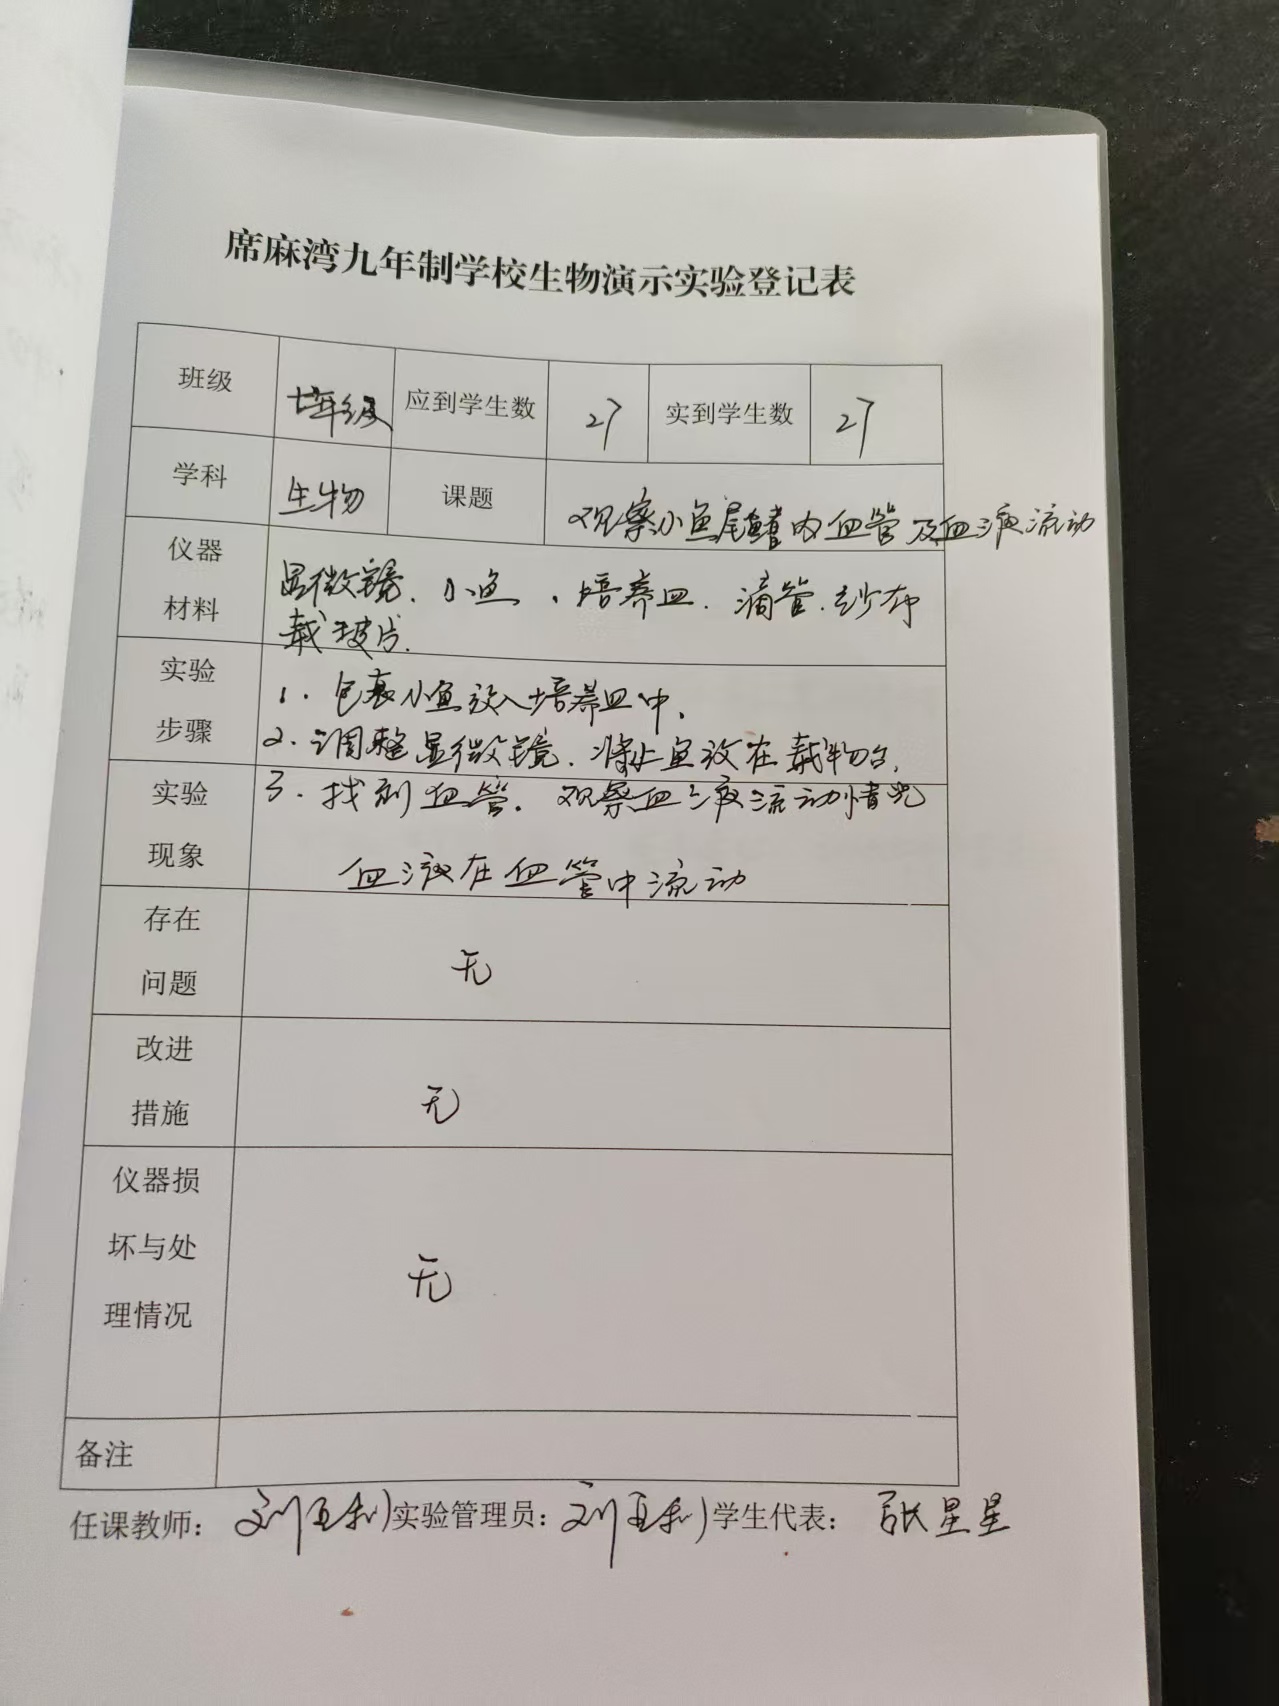 席麻湾九年制学校生物演示实验登记表
班级 七年级 应到学生数 27 实到学生数 27
学科 生物 课题 观察小鱼尾鳍内血管及血液流动
仪器
材料
显微镜、小鱼、培养皿、滴管、纱布
载玻片.
实验
步骤
1. 包裹小鱼放入培养皿中,
2. 调整显微镜、将小鱼放在载物台,
3. 找到血管. 观察血液流动情况
实验
现象
血液在血管中流动
存在
问题
无
改进
措施
无
仪器损
坏与处
理情况
无
备注
任课教师: 刘亚利 实验管理员: 刘亚利 学生代表: 张星星